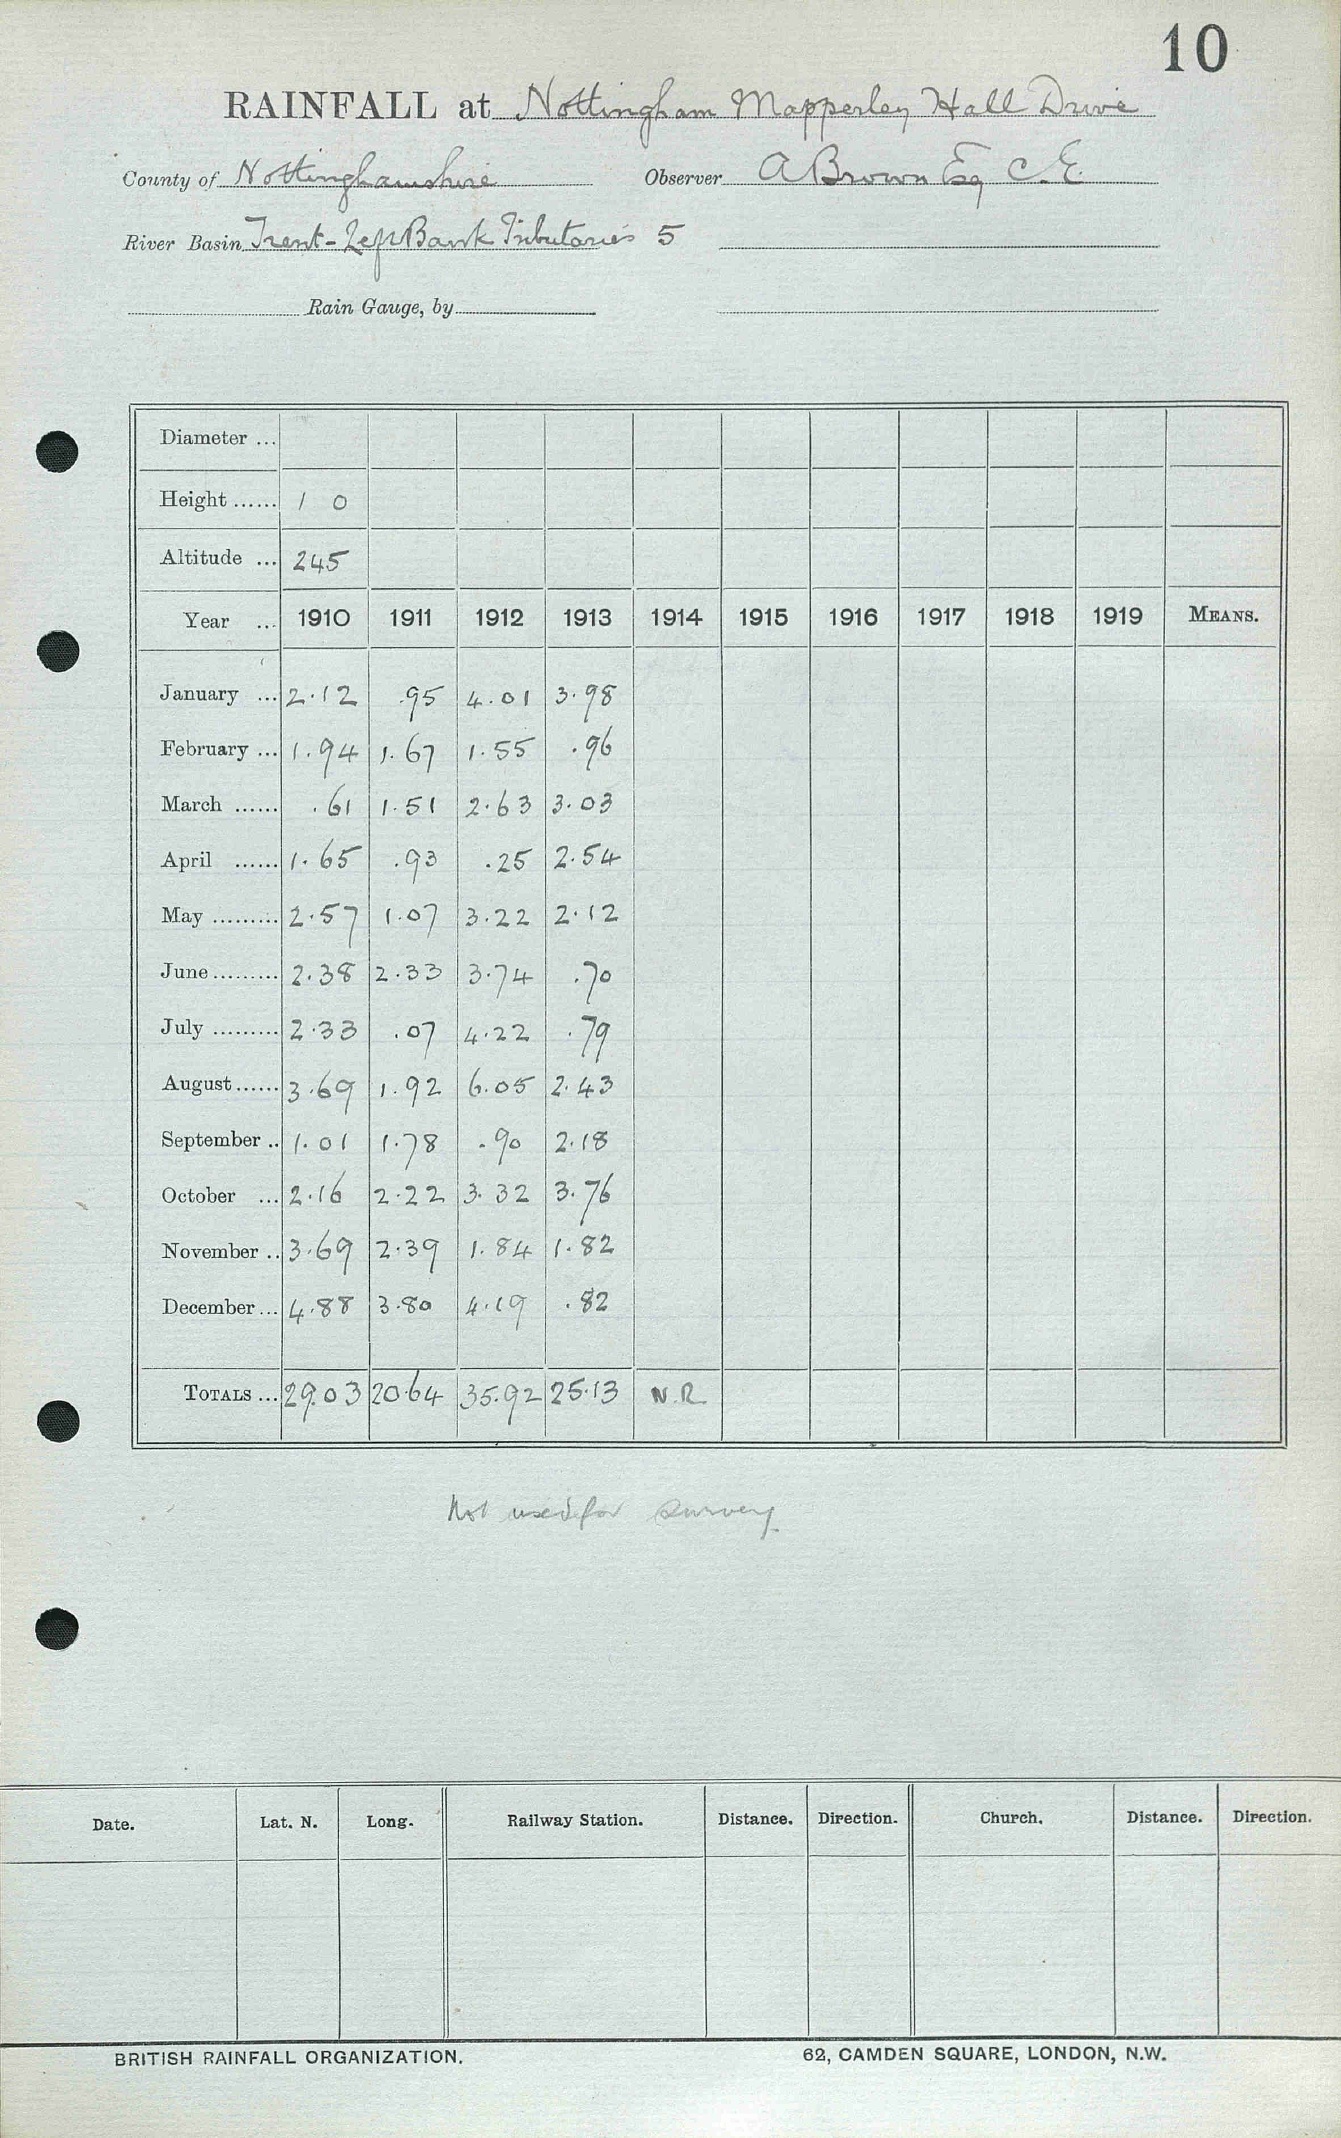 10
RAINFALL at Nottingham Mapperley Hall Drive
County of Nottinghamshire Observer A Brown Esq C.E.
River Basin Trent-Left Bank Tributaries 5
Rain Gauge, by
Diameter ...
Height ...... 1 0
Altitude ... 245
Year ... 1910 1911 1912 1913 1914 1915 1916 1917 1918 1919 MEANS.
January ... 2.12 .95 4.01 3.98
February ... 1.94 1.67 1.55 .96
March ...... .61 1.51 2.63 3.03
April ...... 1.65 .93 .25 2.54
May ......... 2.57 1.07 3.22 2.12
June ......... 2.38 2.33 3.74 .70
July ......... 2.33 .07 4.22 .79
August ...... 3.69 1.92 6.05 2.43
September .. 1.01 1.78 .90 2.18
October ... 2.16 2.22 3.32 3.76
November .. 3.69 2.39 1.84 1.82
December ... 4.88 3.80 4.19 .82
TOTALS ... 29.03 20.64 35.92 25.13 N.R.
Not used for survey
Date. Lat. N. Long. Railway Station. Distance. Direction. Church. Distance. Direction.
BRITISH RAINFALL ORGANIZATION. 62, CAMDEN SQUARE, LONDON, N.W.